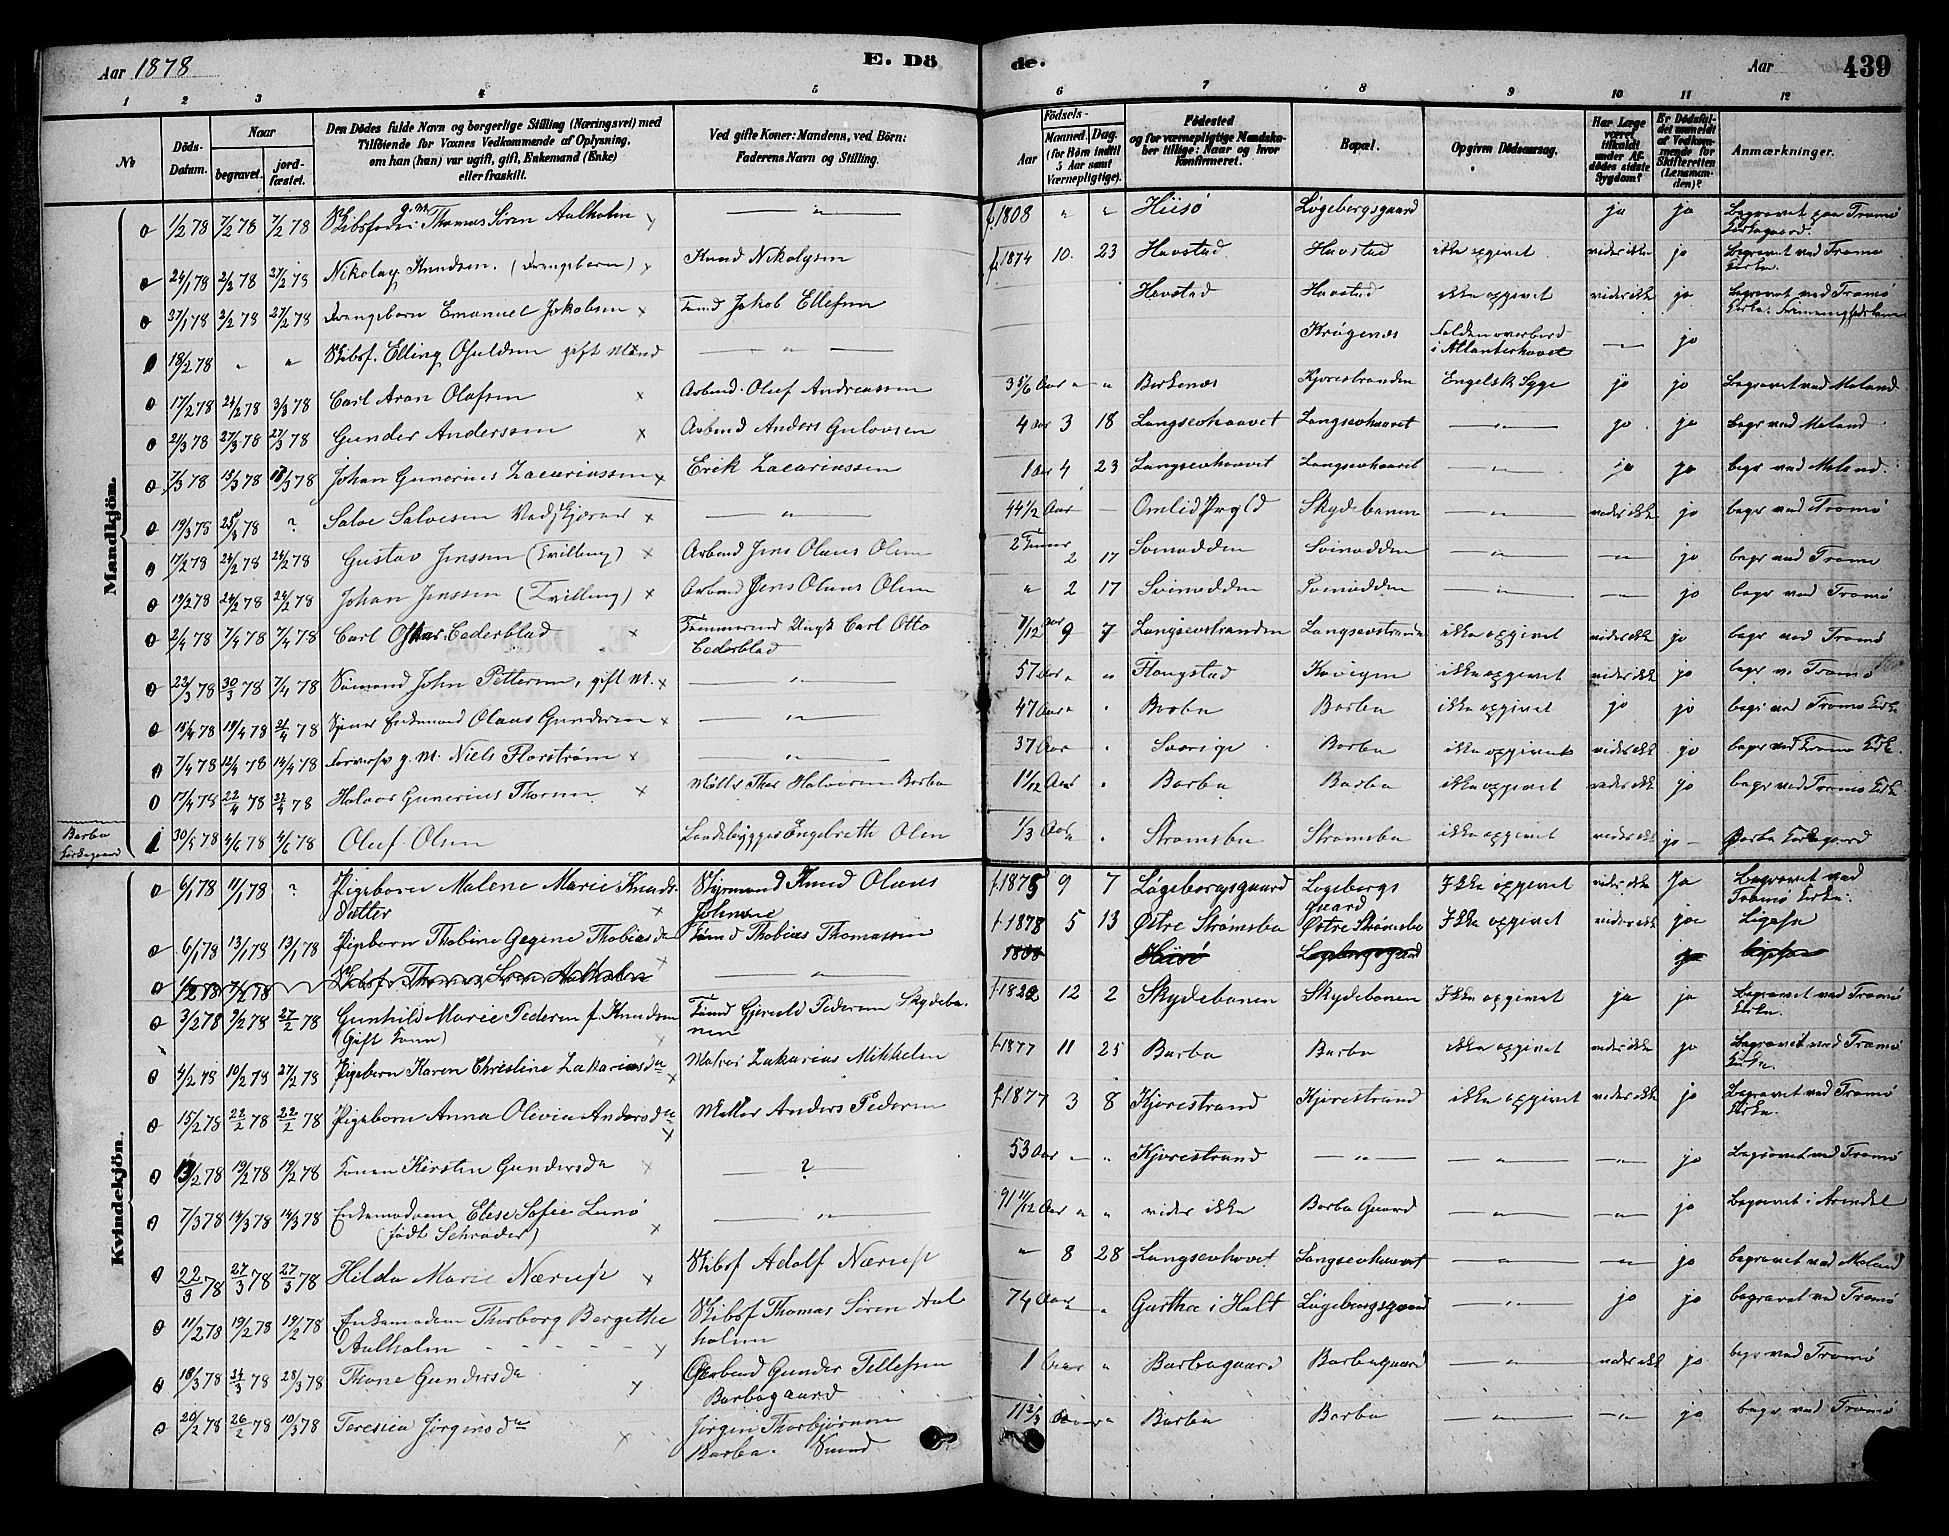 Aar 1878 E. Dö de. Aar 439
1 2 3 4 5 6 7 8 9 10 11 12
No
Döds-Datum.
Naar
begravet.
jordfæstet.
Den Dödes fulde Navn og borgerlige Stilling (Næringsvei) med
Tilföiende for Voxnes Vedkommende af Oplysning,
om han (hun) var ugift, gift, Enkemand (Enke)
eller fraskilt.
Ved gifte Koner: Mandens, ved Börn:
Faderens Navn og Stilling.
Födsels-
Aar
Maaned. Dag.
(for Börn indtil
5 Aar samt
Værnepligtige).
Födested
og for værnepligtige Mandskaber tillige: Naar og hvor
konfirmeret.
Bopæl.
Opgiven Dödsaarsag.
Har Læge
været
tilkaldt
under Afdödes sidste
Sygdom?
Er Dödsfaldet anmeldt
af Vedkommende for
Skifteretten
(Lensmanden)?
Anmærkninger.
Mandkjön.
0 1/2 78 7/2 78 7/2 78 Skibsföder g. m. Thomas Sören Aalholm — " — f. 1808 " " Hiisö Lögebergsgaard ja ja Begravet paa Tromö Kirkegaard.
0 24/1 78 2/2 78 27/2 78 Nikolay Knudsen. (Drengebarn) Knud Nikolysen f. 1874 10. 23 Havstad Havstad ikke opgivet vides ikke jo Begravet ved Tromø Kirke.
0 31/1 78 3/2 78 27/2 78 Drengebarn Emanuel Jakobsen Tømd Jakob Ellefsen Havstad Havstad ikke opgivet vides ikke jo Begravet ved Tromö Kirke.
0 18/2 78 " " Skibsf. Elling Osuldsen gift Mand — " — Krögenæs Falden overbord i Atlanterhavet — jo
0 17/2 78 24/2 78 3/3 78 Carl Aron Olafsen Arbmd. Oluf Andreassen 3 5/6 Aar " " Birkenæs Kjörestranden Engelsk Syge jo jo Begravet ved Moland
0 2/3 78 27/3 78 27/3 78 Gunder Anderssen Arbmd Anders Gulovsen 4 Aar 3 18 Langsevhaavet Langsevhaavet — " — jo jo Begr ved Moland
0 7/3 78 15/3 78 18/3 78 Johan Gunerius Zacariassen Erik Zacariassen 1 Aar 4 23 Langsevhaavet Langsevhaavet — " — jo jo begr ved Moland.
0 19/3 78 25/3 78 ? Salve Salvesen Vedskjærer — " — 44 1/2 Aar — Omlid Prgld Skydebanen — " — vides ikke jo begr ved Tromö
0 17/2 78 24/2 78 24/2 78 Gustav Jenssen (Tvilling) Arbmd Jens Olaus Olsen 2 17 Svinodden Svinodden — " — — " — jo begr ved Tromø
0 19/2 78 24/2 78 24/2 78 Johan Jenssen (Tvilling) Arbmd Jens Olaus Olsen " 2 17 Svinodden Svinodden — " — jo begr ved Tromö
0 2/4 78 7/4 78 7/4 78 Carl Oskar Cederblad Tømmermd Ungk Carl Otto Cederblad 9/12 Aar 9 7 Langsevstranden Langsevstrande ikke opgivet vides ikke jo begr ved Tromö
0 23/3 78 30/3 78 7/4 78 Sømand John Pettersen, gift M. — " — 57 Aar " " Flangstad Kovigen ikke opgivet vides ikke jo begr v. Tromö
0 15/4 78 19/4 78 21/4 78 Enkemand Olaus Gundersen — " — 47 Aar " Barbo Barbu ikke opgivet jo jo begr ved Tromø Kirke
0 7/4 78 12/4 78 14/4 78 Farver g. M. Niels Florström — " — 37 Aar " Sverige Barbu ikke opgivet vides ikke jo begr ved Tromø Kirke.
0 17/4 78 22/4 78 22/4 78 Halvor Gunerius Thorsen Møller Thor Halvorsen Barbo 1 1/12 Aar " Barbu Barbu ikke opgivet vides ikke jo begr ved Tromö Kirke.
Barbu Kirkegaard 1 30/5 78 4/6 78 4/6 78 Oluf Olsen Baadebygger Engebreth Olsen 1/3 Aar " Strømsbu Strømsbu ikke opgivet vides ikke jo — Barbu Kirkegaard
Kvindekjön.
0 6/1 78 11/1 78 ? Pigebarn Malene Marie Knudsdatter Styrmand Knud Olaus Johnsen f. 1875 9 7 Lögeborgsgaard Logeborgsgaard Ikke opgivet vides ikke Ja Begravet ved Tromö Kirke.
0 6/1 78 13/1 78 13/1 78 Pigebarn Thobine Gegine Thobiasda Tømd Thobias Thomassen f. 1878 5 13 Østre Strømsbu Østre Strømsbu Ikke opgivet vides ikke jae Ligesaa
0 1/2 78 7/2 78 Skibsf. Thomas Sören Aalholm — " — 1808 Hiisö Lögebergsgaard ja ligesaa
0 3/2 78 9/2 78 27/2 78 Gunhild Marie Pedersen f. Knudsen (Gift Kone) Tømd Gjeruld Pedersen Skydebanen f. 1822 12 2 Skydebanen Skydebanen Ikke opgivet ja ja Begravet ved Tromö Kirke.
0 4/2 78 10/2 78 27/2 78 Pigebarn Karen Christine Zakariasda Matros Zakarias Mikkelsen f. 1877 11 25 Barbu Barbu ikke opgivet vides ikke jo Begravet ved Tromö Kirke.
0 15/2 78 22/2 78 22/2 78 Pigebarn Anna Olivia Andersda Møller Anders Pedersen f. 1877 3 8 Kjörestrand Kjörestrand ikke opgivet vides ikke jo Begravet ved Tromö Kirke.
0 13/2 78 19/2 78 19/2 78 Konen Kirsten Gundersda ? 53 Aar " " Kjörestrand — " — — " — — " — jo Begravet ved Tromö
0 7/3 78 14/3 78 14/3 78 Enkemadam Elise Sofie Lunö (født Schrøder) — " — 91 11/12 Aar " " vides ikke Barbo Gaard — " — — " — jo Begravet i Arendal
0 22/3 78 27/3 78 27/3 78 Hilda Marie Nærup Skibsf Adolf Nærup " 8 28 Langsevhovet Langsevhaavet — " — — " — jo begravet ved Moland
0 11/2 78 19/2 78 19/2 78 Enkemadam Thorborg Bergithe Aalholm Skibsf Thomas Sören Aalholm 74 Aar " Gartha i Holt Lögebergsgaard — " — jo jo begravet ved Tromö
0 18/3 78 24/3 78 28/3 78 Thone Gundersda Arbmd Gunder Tellefsen Barbogaard 1 Aar " Barbogaard Barbogaard — " — vides ikke jo begr ved Tromö
0 20/2 78 26/2 78 10/3 78 Teresia Jörgensda Jörgen Thorbjørnsen Barbu. Smed 11 2/3 Aar " Barbu Barbu — " — — " — jo begr ved Tromö